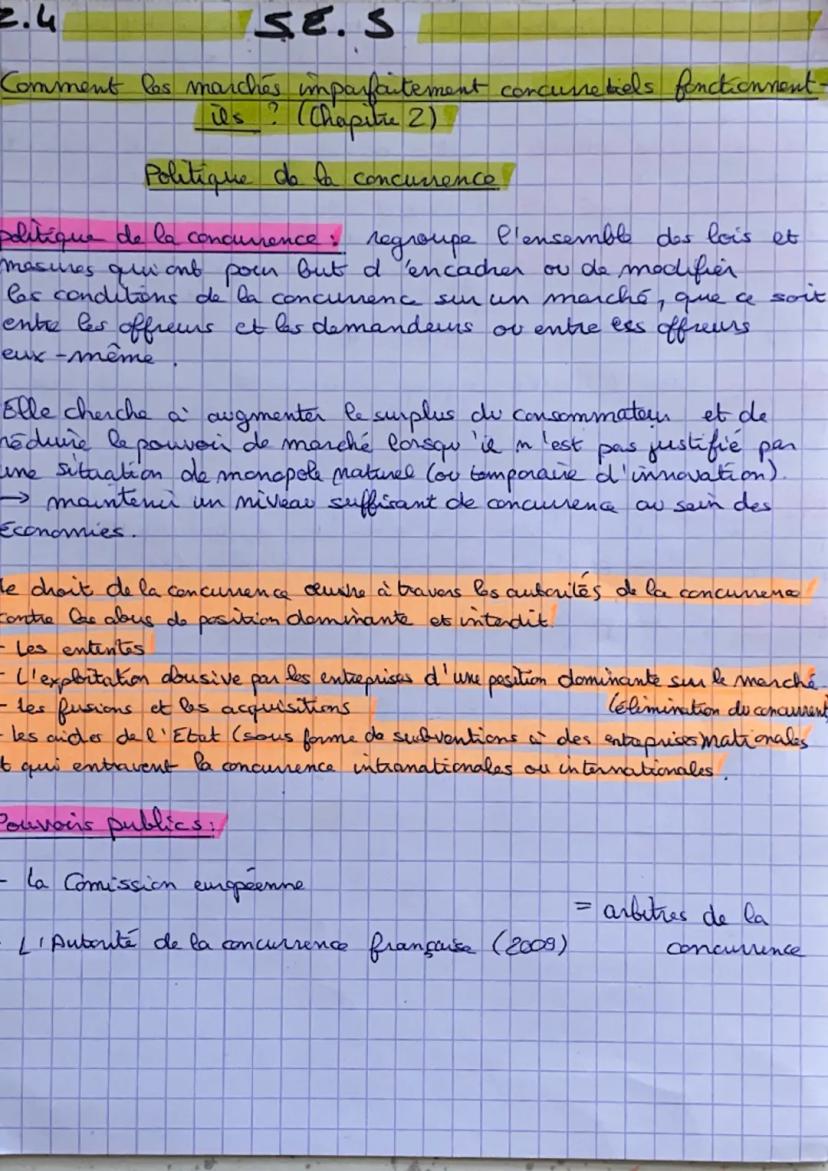 2.4 S.E.S
Comment les marchés imparfaitement concurretiels fonctionnent-
ils ? (Chapitre 2)
Politique de la concurrence
politique de la concurrence : regroupe l'ensemble des lois et
mesures qui ont pour but d'encadrer ou de modifier
les conditions de la concurrence sur un marché, que ce soit
entre les offreurs et les demandeurs ou entre ess offreurs
eux-même.
Elle cherche à augmenter le surplus du consommateur et de
réduire le pouvoir de marché lorsqu'il n'est pas justifié par
une situation de monopole naturel (ou temporaire d'innovation).
→ maintenir un niveau suffisant de concurrence au sein des
économies.
le droit de la concurrence œuvre à travers les autorités de la concurrence
contre les abus de position dominante et interdit
- Les ententes
- L'exploitation abusive par les entreprises d'une position dominante sur le marché
- les fusions et les acquisitions (élimination du concurrent
- les aides de l'Etat (sous forme de subventions à des entreprises nationales
t qui entravent la concurrence intranationales ou internationales.
Pouvoirs publics :
- la Comission européenne
= arbitres de la
- L'Autorité de la concurrence française (2009) concurrence